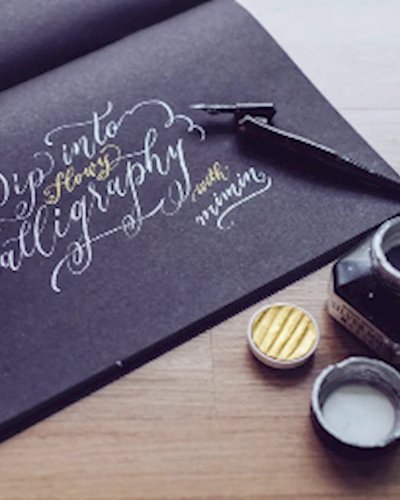 Dip into
Flowy
Calligraphy
with
mimin